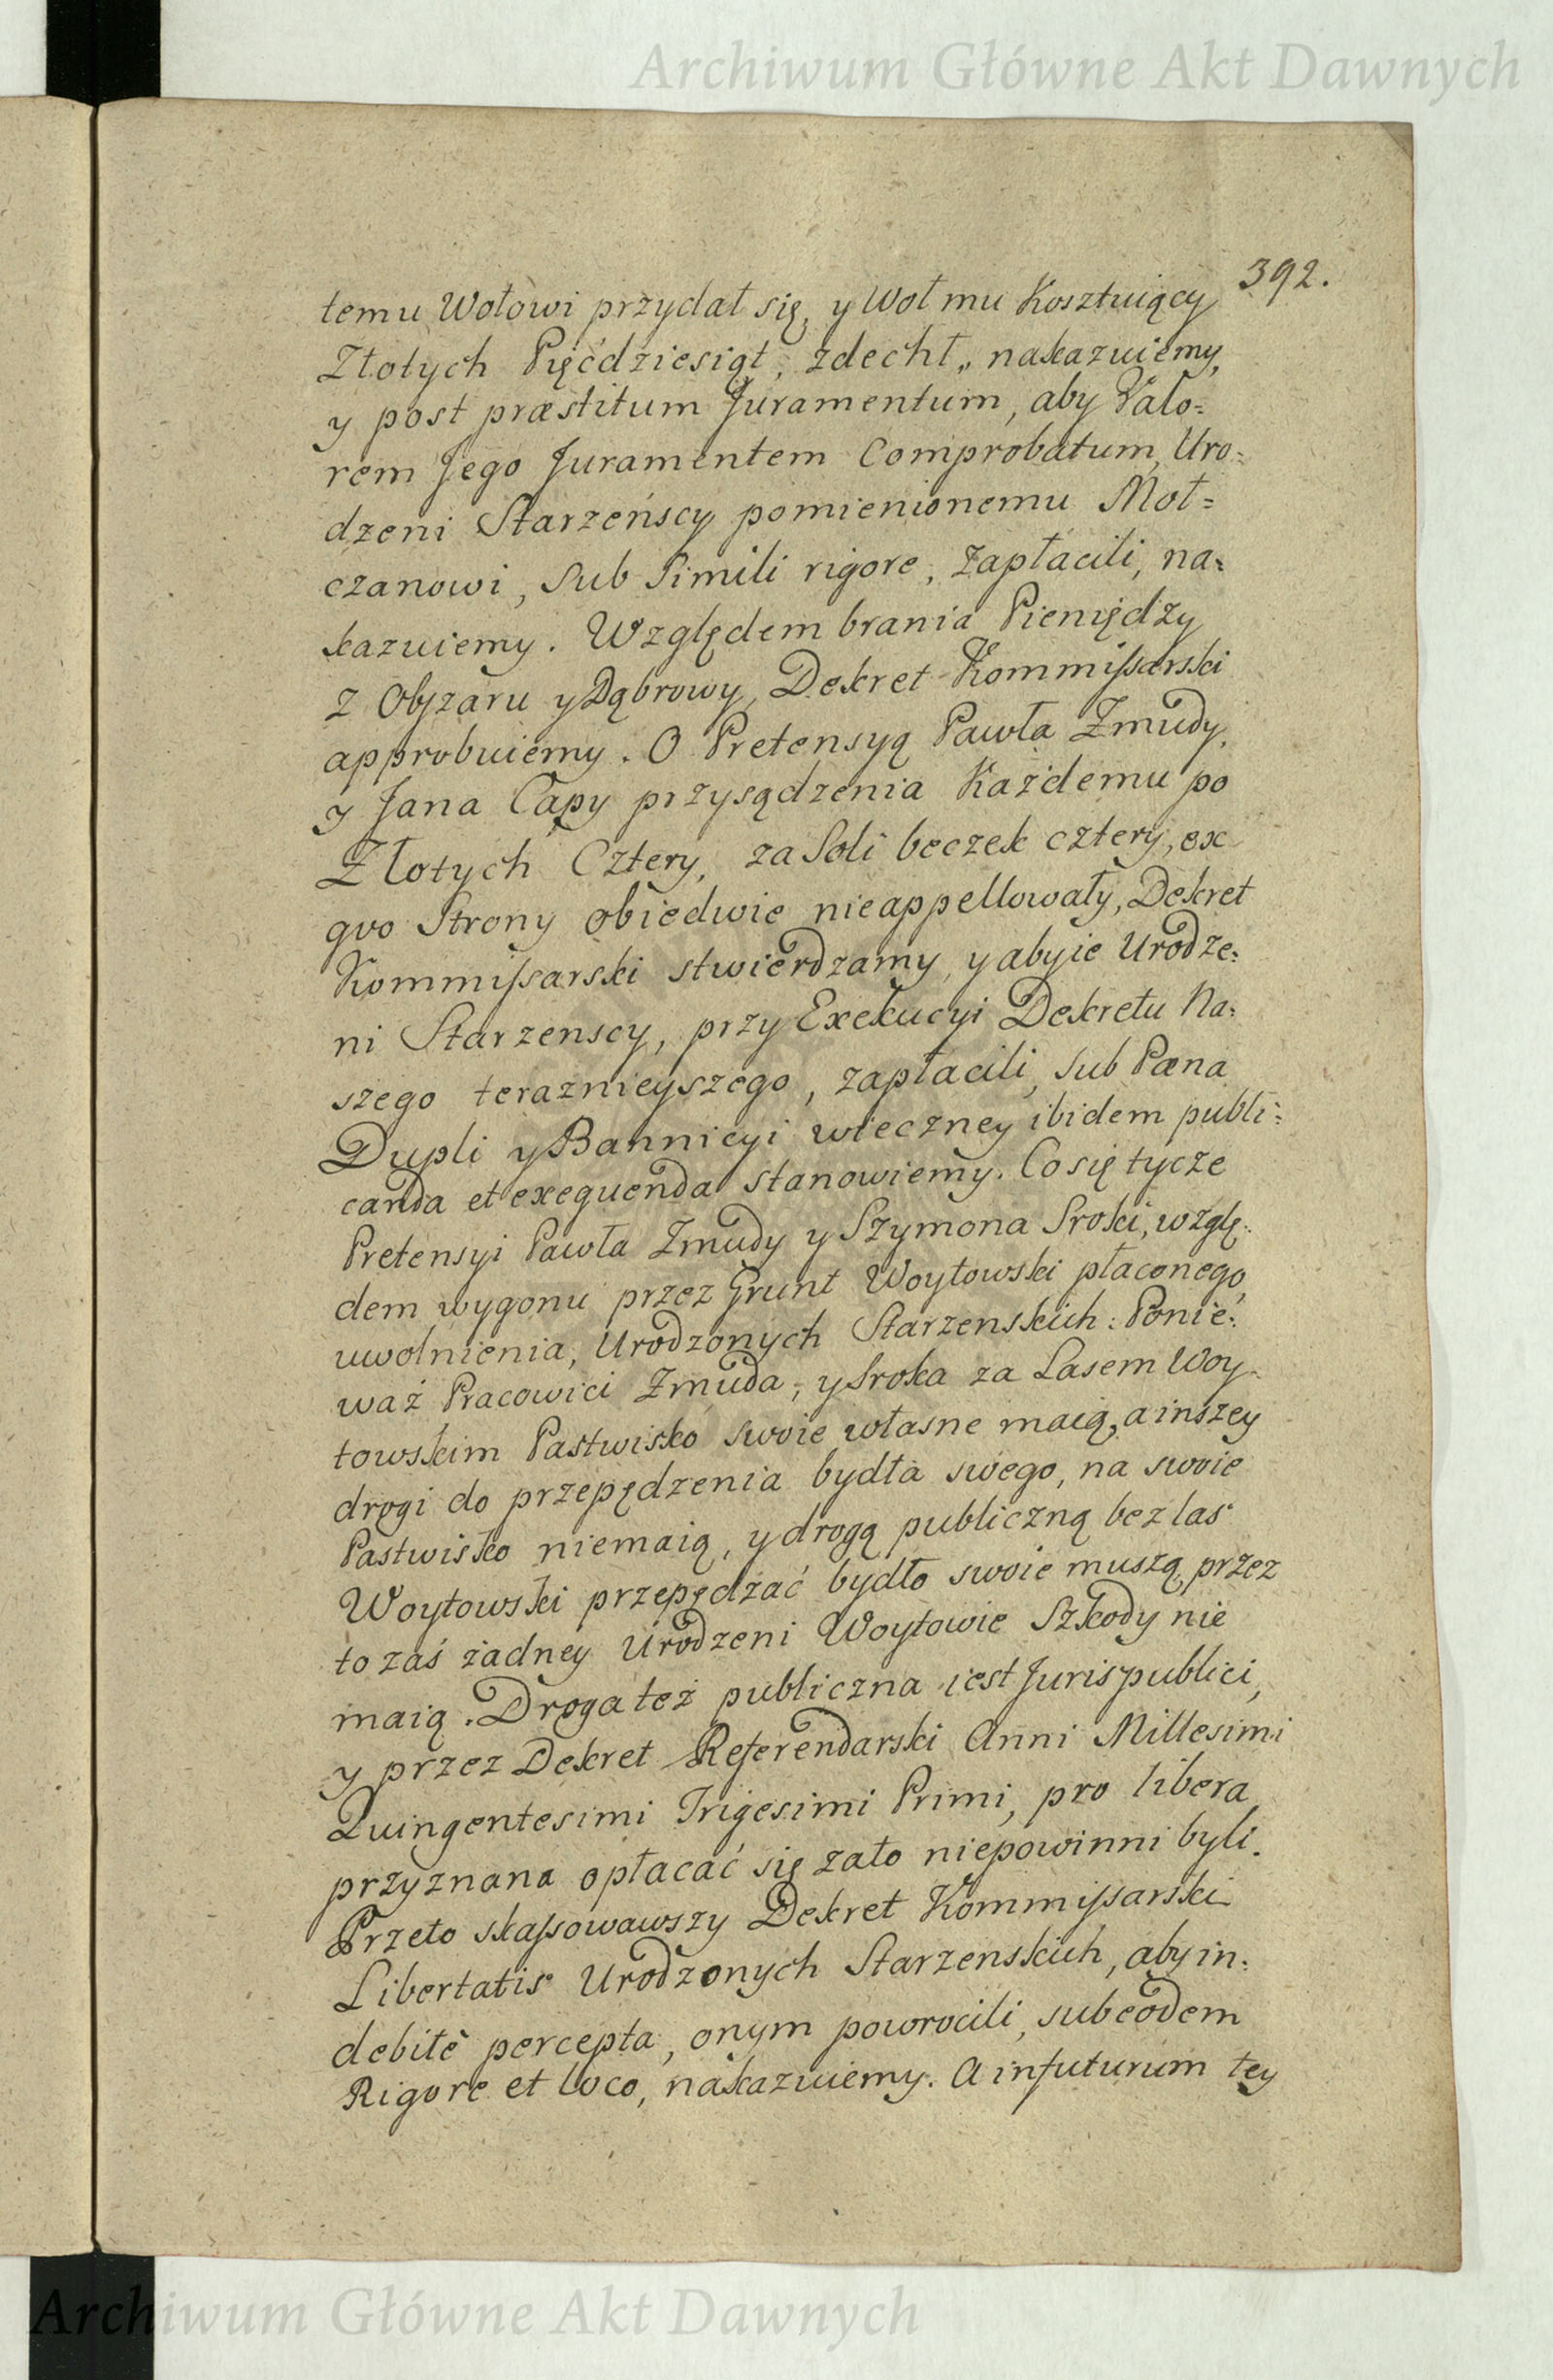 Archiwum Główne Akt Dawnych
392.
temu Wołowi przydał się, y Woł mu Kosztuiący
Złotych Pięćdziesiąt, zdechł, nakazuiemy,
y post præstitum Juramentum, aby Valo=
rem Jego Juramentem Comprobatum, Uro=
dzeni Starzeńscy pomienionemu Moł=
czanowi, sub simili rigore, zapłacili, na=
kazuiemy. Względem brania Pieniędzy
z Obszaru y Dąbrowy, Dekret Kommissarski
approbuiemy. O Pretensyą Pawła Zmudy,
y Jana Capy przysądzenia Każdemu po
Złotych Cztery, za Soli beczek cztery, ex
quo Strony obiedwie nieappellowały, Dekret
Kommissarski stwierdzamy, y aby ie Urodze=
ni Starzenscy, przy Exekucyi Dekretu Na=
szego teraznieyszego, zapłacili, sub Pæna
Dupli y Bannicyi wieczney ibidem publi=
canda et exequenda stanowiemy. Co się tycze
Pretensyi Pawła Zmudy y Szymona Sroki, wzglę=
dem wygonu przez Grunt Woytowski płaconego,
uwolnienia, Urodzonych Starzenskich: Ponie=
waż Pracowici Zmuda, y Sroka za Lasem Woy=
towskim Pastwisko swoie własne maią, a inszey
drogi do przepędzenia bydła swego, na swoie
Pastwisko niemaią, y drogą publiczną bez las
Woytowski przepędzać bydło swoie muszą, przez
to zaś żadney Urodzeni Woytowie Szkody nie
maią. Droga też publiczna iest Juris publici,
y przez Dekret Referendarski Anni Millesimi
Quingentesimi Trigesimi Primi, pro libera
przyznana opłacać się zato niepowinni byli.
Przeto skassowawszy Dekret Kommissarski
Libertatis Urodzonych Starzenskich, aby in=
debitè percepta, onym powrocili, sub eodem
Rigore et loco, nakazuiemy. A in futurum tey
Archiwum Główne Akt Dawnych